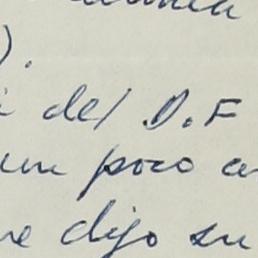 ).
del D.F
un poco
dijo su